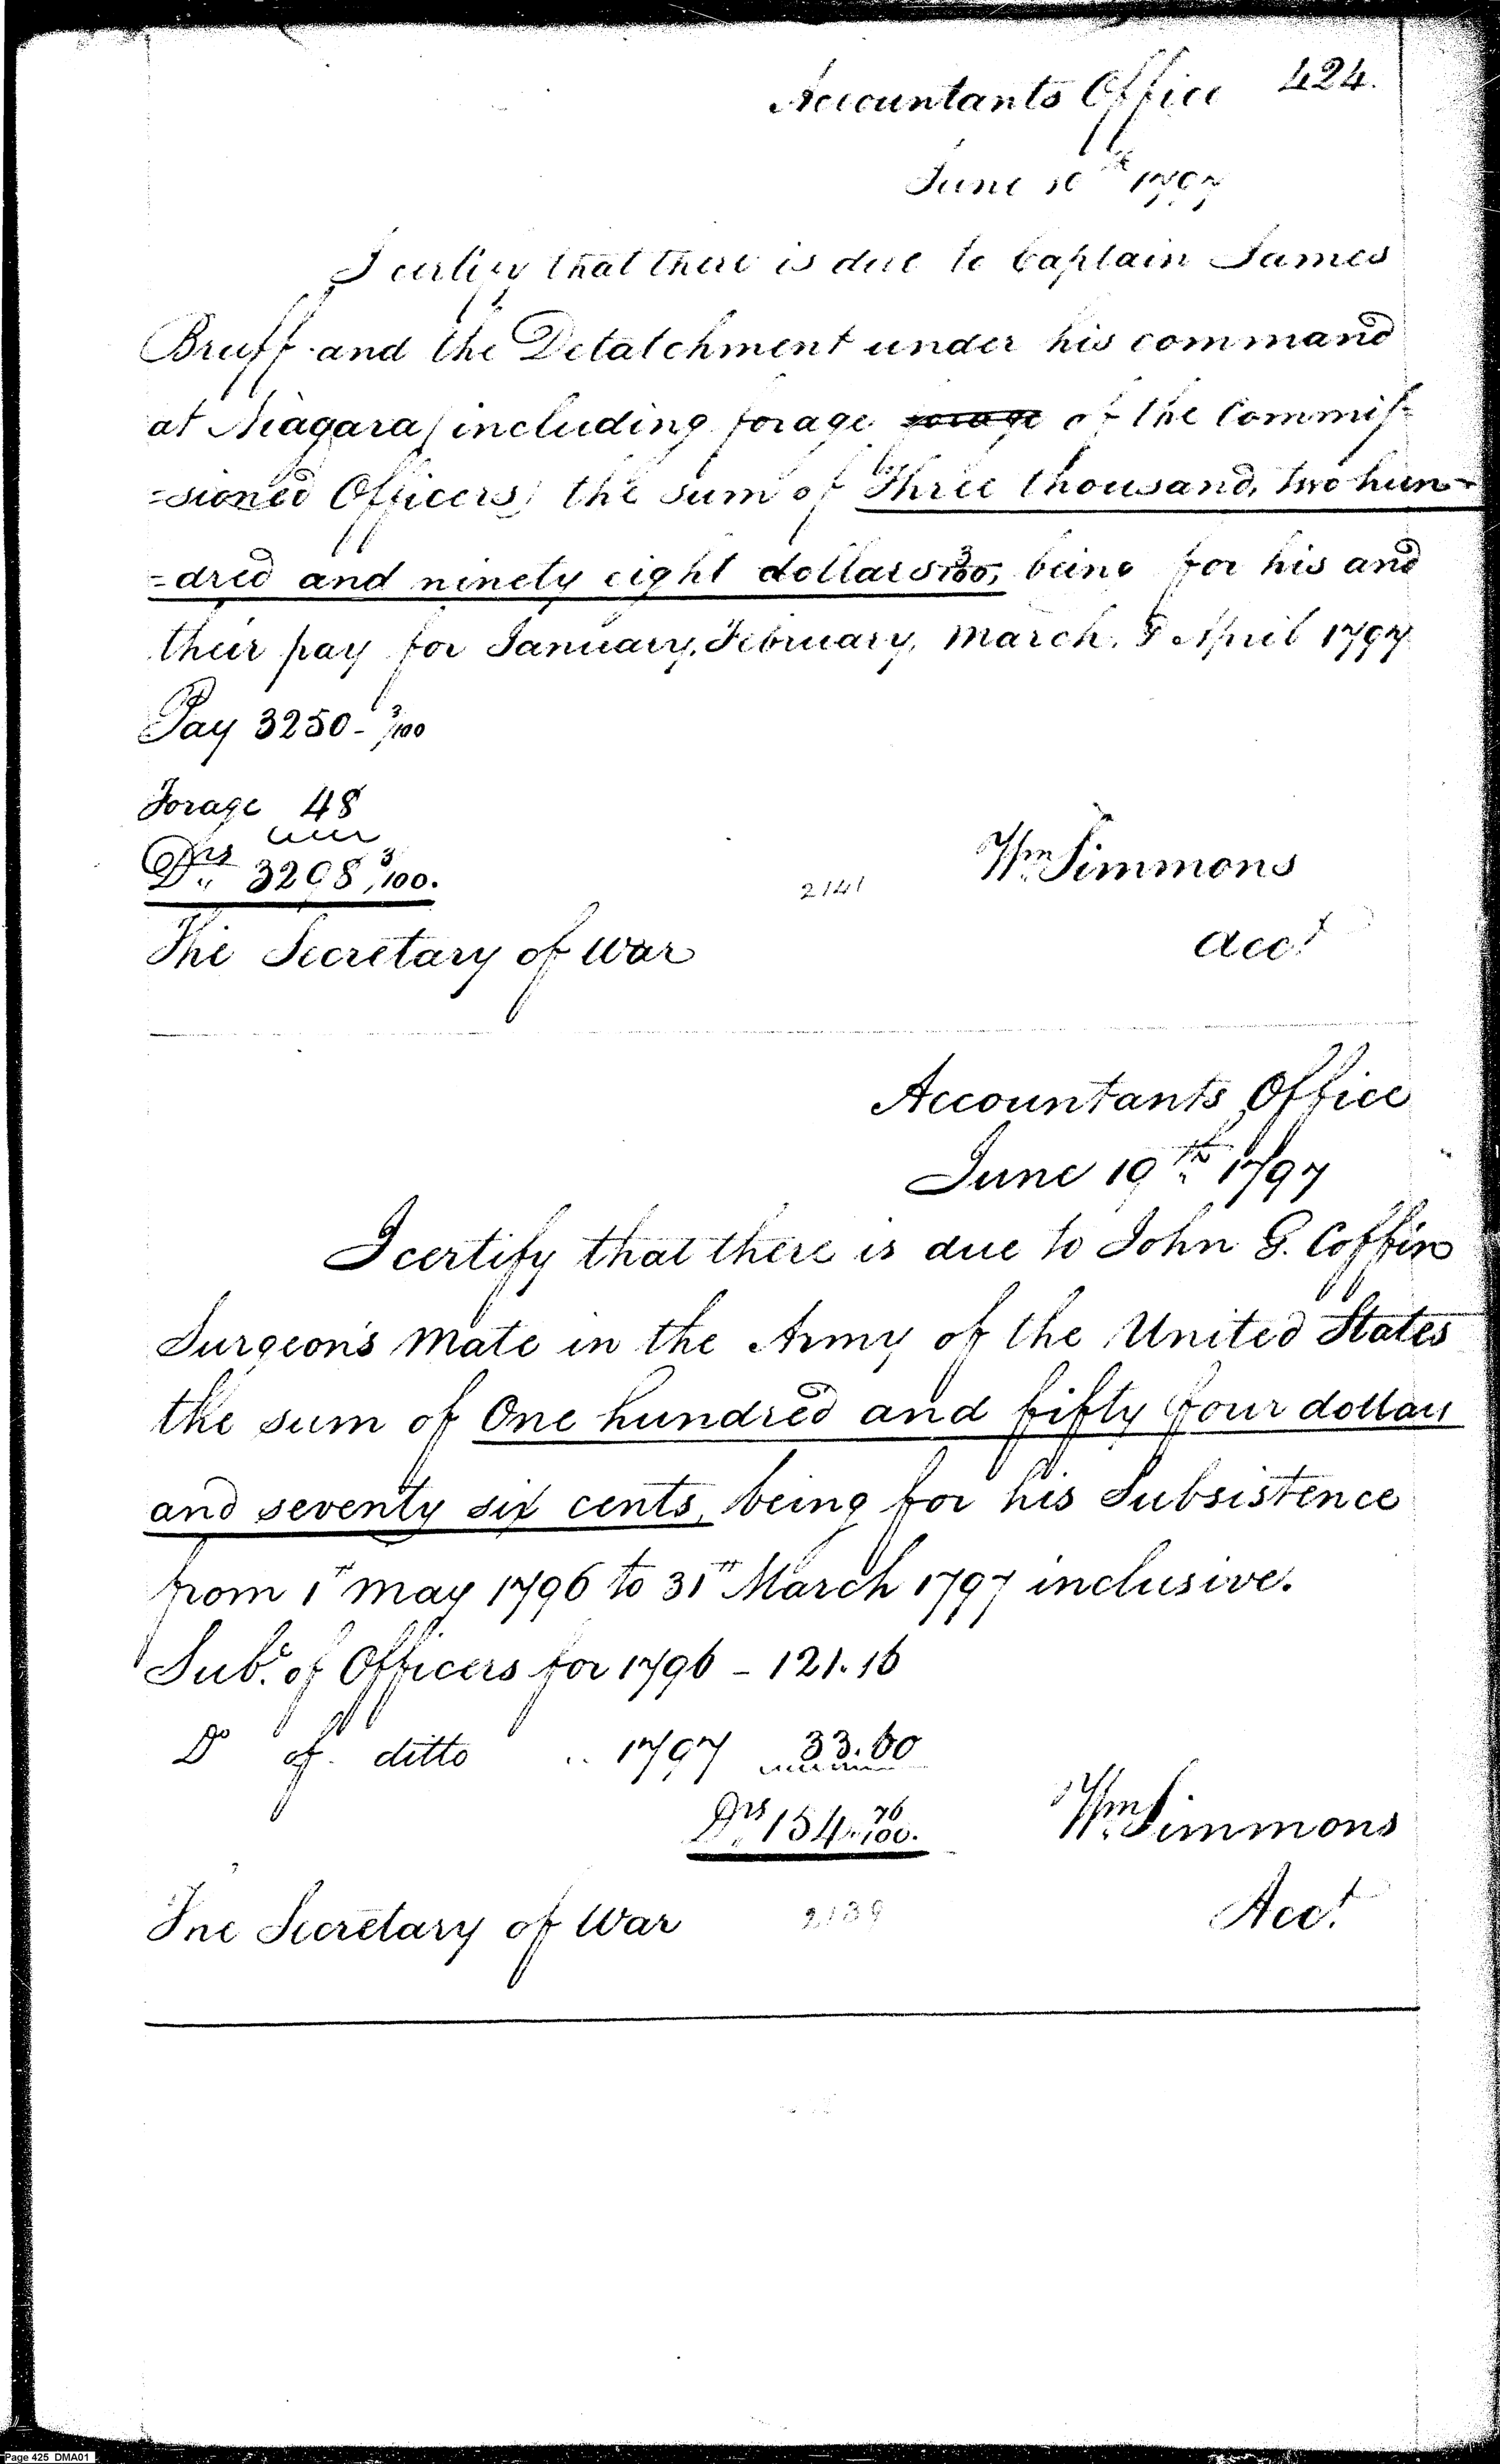 Accountants Office 424.
June 10th 1797
I certify that there is due to Captain James
Bruff and the Detatchment under his command
at Niagara (including forage forage of the Commis-
=sioned Officers) the sum of Three thousand, two hun-
=dred and ninety eight dollars 3/100, being for his and
their pay for January, February, March, & April 1797
Pay 3250 - 3/100
Forage 48
Drs 3298 3/100.
Wm Simmons
2141
The Secretary of War
Acct
Accountants Office
June 19th 1797
I certify that there is due to John G. Coffin
Surgeon's Mate in the Army of the United States
the sum of One hundred and fifty four dollars
and seventy six cents, being for his Subsistence
from 1st May 1796 to 31st March 1797 inclusive.
Subce. of Officers for 1796 - 121.16
Do of ditto .. 1797 33.60
Drs 154. 76/100.
Wm Simmons
The Secretary of War 2139 Acct
Page 425 DMA01